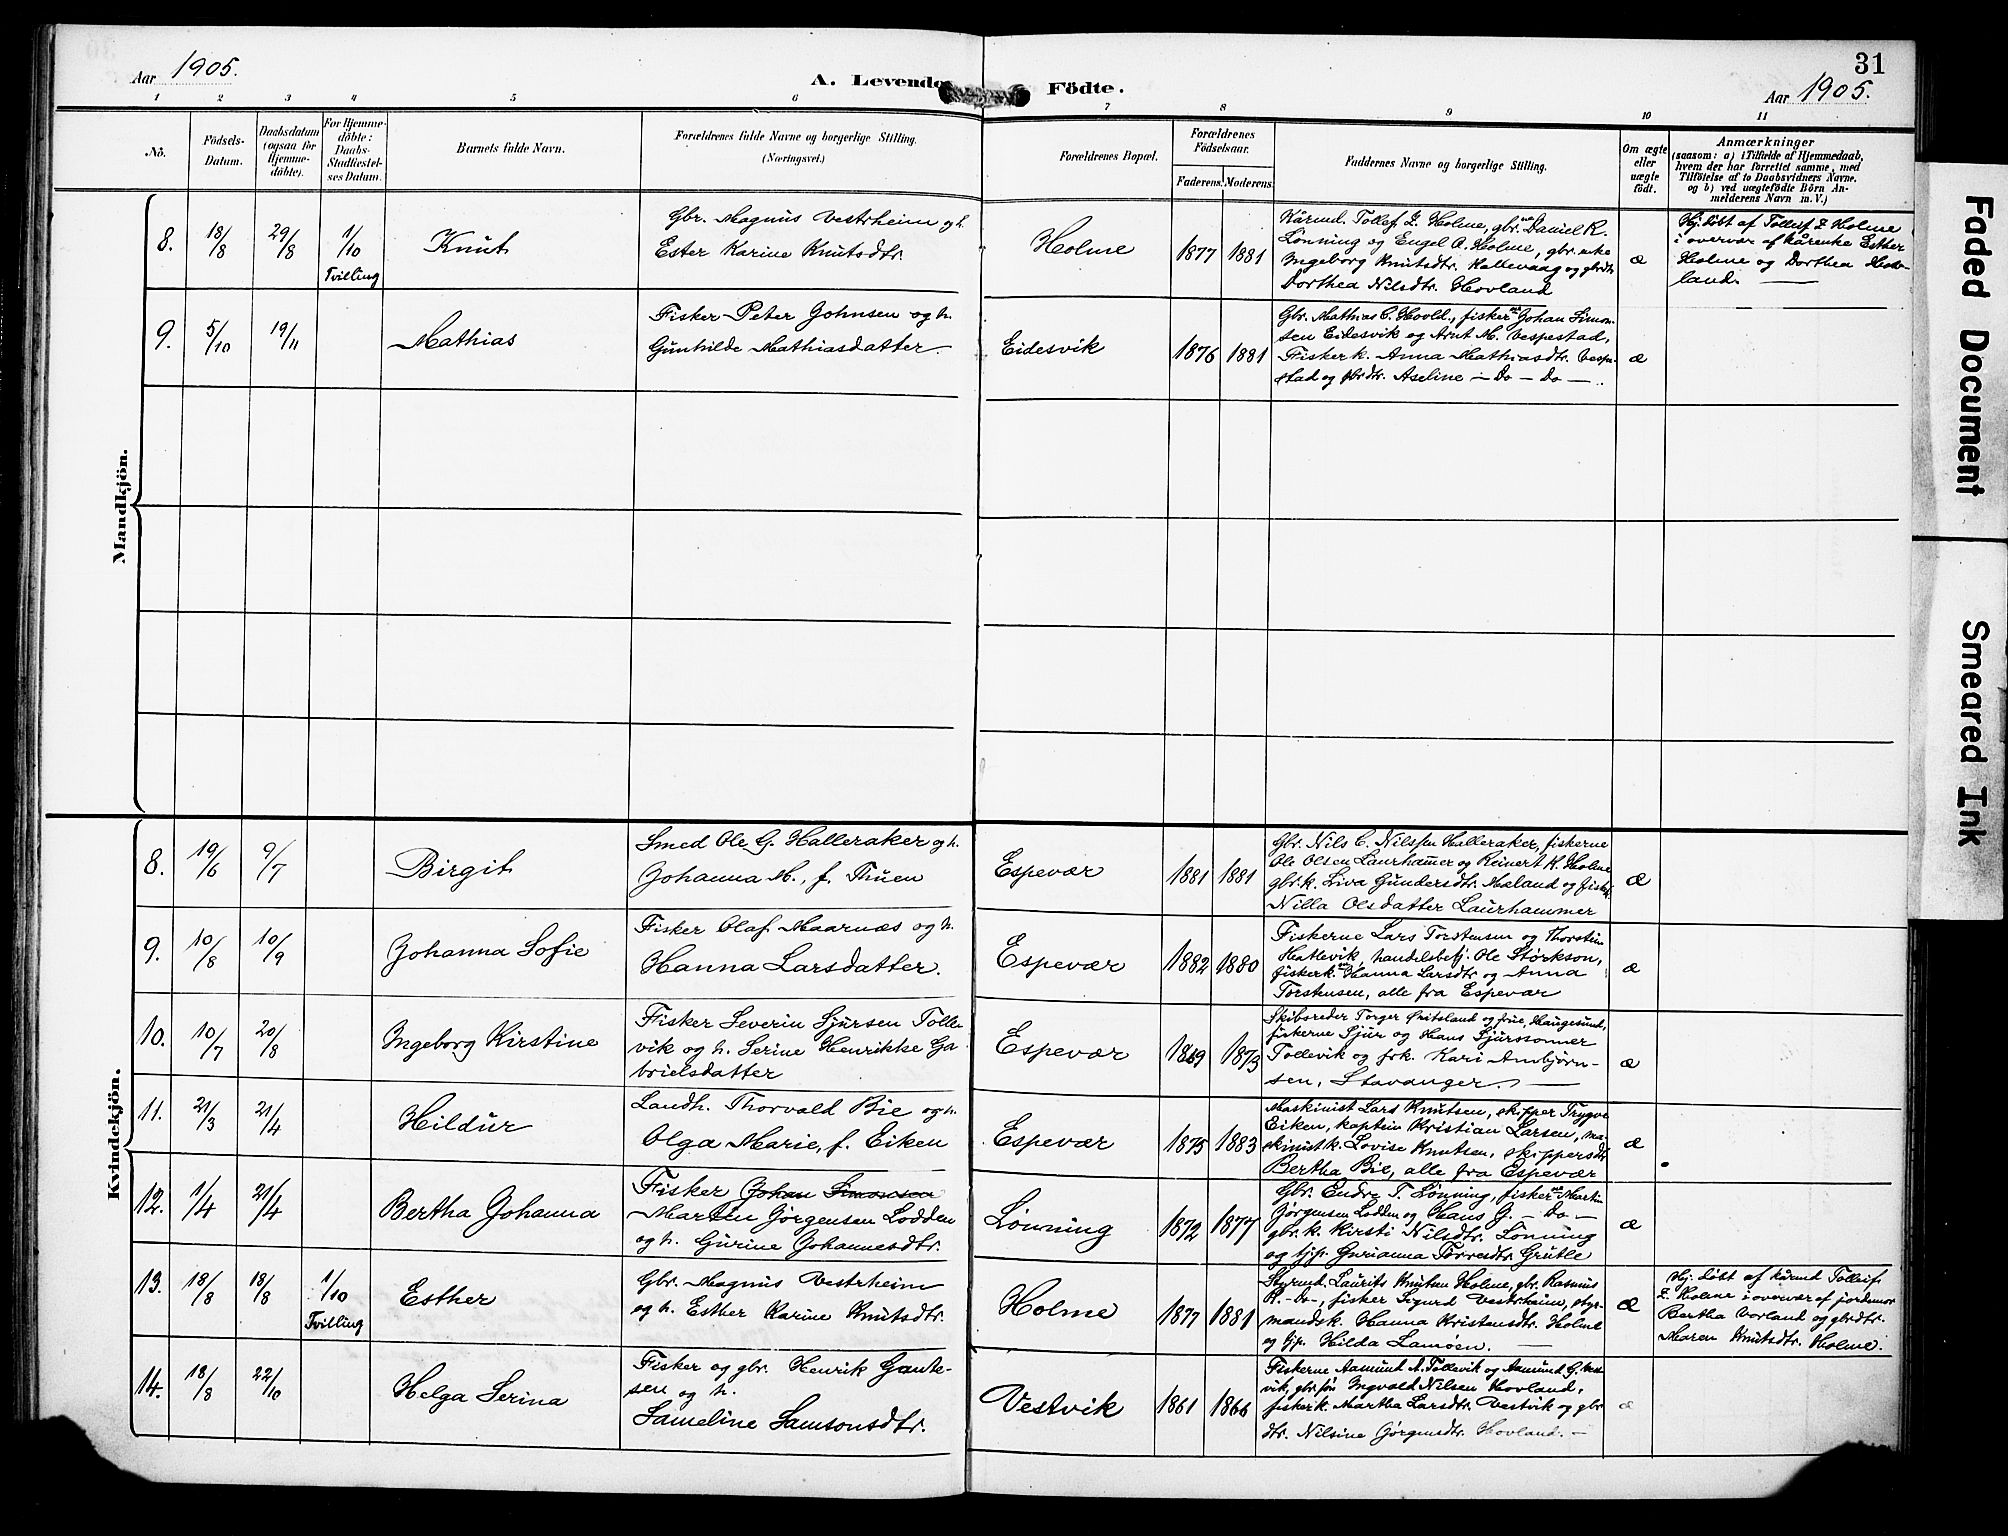 Aar 1905.
A. Levende Födte.
31
Aar 1905.
1 2 3 4 5 6 7 8 9 10 11
Nô.
Födsels-
Datum.
Daabsdatum
(ogsaa for
Hjemme-
döbte).
For Hjemme-
döbte:
Daabs-
Stadfæstel-
ses Datum.
Barnets fulde Navn.
Forældrenes fulde Navne og borgerlige Stilling.
(Næringsvei.)
Forældrenes Bopæl.
Forældrenes
Födselsaar.
Faderens. Moderens.
Faddernes Navne og borgerlige Stilling.
Om ægte
eller
uægte
födt.
Anmærkninger
(saasom: a) i Tilfælde af Hjemmedaab,
hvem der har forrettet samme, med
Tilföielse af to Daabsvidners Navne.
og b) ved uægtefödte Börn An-
melderens Navn m.V.)
Mandkjön.
8.
18/8
29/8
1/10
Tvilling
Knut
Gbr. Magnus Vestrheim og h.
Ester Karine Knutsdtr.
Holme
1877
1881
Kårmd. Tollef Z. Holme, gbr.ne Daniel R.
Lönning og Engel A. Holme, gbr. enke
Ingeborg Knutsdtr. Kallevaag og gbrdtr
Dorthea Nilsdtr. Hovland
æ
Hj. döbt af Tolleif Z Holme
i overvær af kårenke Esther
Holme og Dorthea Hov-
land. —
9.
5/10
19/11
Mathias
Fisker Peter Johnsen og h.
Gunhilde Mathiasdatter.
Eidesvik
1876
1881
Gbr. Mathias C. Hovld., fisker ne Johan Simon-
sen Eidesvik og Arnt M. Vespestad,
Fisker k. Anna Mathiasdtr. Vespe-
stad og gbrdtr. Aseline — Do — Do —.
æ
Kvindekjön.
8.
19/6
9/7
Birgit
Smed Ole G. Halleraker og h.
Johanna M., f. Thuen
Espevær
1881
1881
Gbr. Nils C. Nilssen Halleraker, fiskerne
Ole Olsen Laurhammer og Reinert K. Holme
gbr.k. Liva Gundersdtr. Mæland og fisker
Nilla Olsdatter Laurhammer
æ
9.
10/8
10/9
Johanna Sofie
Fisker Olaf Maarnæs og h.
Hanna Larsdatter.
Espevær
1882
1880
Fiskerne Lars Torstensen og Thorstein
Hatlevik, handelsbetj. Ole Störkson,
fiskerk.ne Hanna Larsdtr og Anna
Torstensen, alle fra Espevær
æ
10.
10/7
20/8
Ingeborg Kirstine
Fisker Severin Sjursen Tolle-
vik og h. Serine Henrikke Ga
brielsdatter
Espevær
1869
1873
Skibsreder Torger Øritsland og frue, Haugesund,
fiskerne Sjur og Hans Sjurssønner
Tollevik og frk. Kari Ambjørn-
sen, Stavanger. —
æ
11.
21/3
21/4
Hildur
Landh. Thorvald Bie og h.
Olga Marie, f. Eiken
Espevær
1875
1883
Maskinist Lars Knutsen, skipper Trygve
Eiken, kaptein Kristian Larsen, ma-
skinistk. Lovise Knutsen, skippersdtr
Bertha Bie, alle fra Espevær
æ
12.
1/4
21/4
Bertha Johanna
Fisker Johan Simonsen
Martin Jörgensen Lodden
og h. Gurine Johannesdtr.
Lönning
1872
1877
Gbr. Endre T. Lönning, fisker ne Martin
Jörgensen Lodden og Hans G. — Do —
gbr. k. Kirsti Nilsdtr. Lönning
og tjp. Gurianna Torresdtr. Grutle
æ
13.
18/8
18/8
1/10
Tvilling
Esther
Gbr. Magnus Vestrheim
og h. Esther Karine Knutsdtr.
Holme
1877
1881
Styrmd. Laurits Knutsen Holme, gbr. Rasmus
K. — Do —, fisker Sigurd Vestrheim, styr-
mandsk. Hanna Kristensdtr. Holme
og tjp. Hilda Lamöen. —
æ
Hj. döbt af kårmd Tolleif
Z. Holme i overvær af jordemor
Bertha Vorland og gbrdtr.
Maren Knutsdtr. Holme.
14.
18/8
22/10
Helga Serina
Fisker og gbr. Henrik Gaute-
sen og h.
Sameline Samsonsdtr.
Vestvik
1861
1866
Fiskerne Aasmund A. Tollevik og Aasmund G. Vest
vik, gbr. søn Ingvald Nilsen Hovland,
fiskerk. Martha Larsdtr. Vestvik og gbr
dtr. Nilsine Jörgensdtr. Hovland. —
æ
Faded Document
Smeared Ink